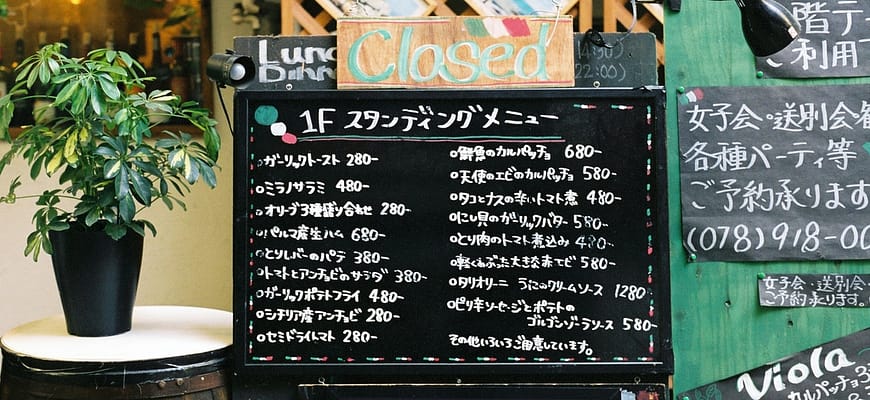 Closed
22:00)
1F スタンディングメニュー
ガーリックトースト 280-
ミラノサラミ 480-
オリーブ3種盛り合わせ 280-
パルマ産生ハム 680-
とりレバーのパテ 380-
トマトとアンチョビのサラダ 380-
ガーリックポテトフライ 480-
シチリア産アンチョビ 280-
セミドライトマト 280-
鮮魚のカルパッチョ 680-
天使のエビのカルパッチョ 580-
タコとナスの辛いトマト煮 480-
にし貝のガーリックバター 580-
とり肉のトマト煮込み 480-
軽くあぶった大きな赤エビ 580-
タリオリーニ うにのクリームソース 1280
ピリ辛ソーセージとポテトの
ゴルゴンゾーラソース 580-
その他いろいろご用意しています。
階テ
ご利用
女子会・送別会
各種パーティ等
ご予約承ります
(078)918-00
女子会・送別会
ご予約承ります。
Viola
カルパッチョ